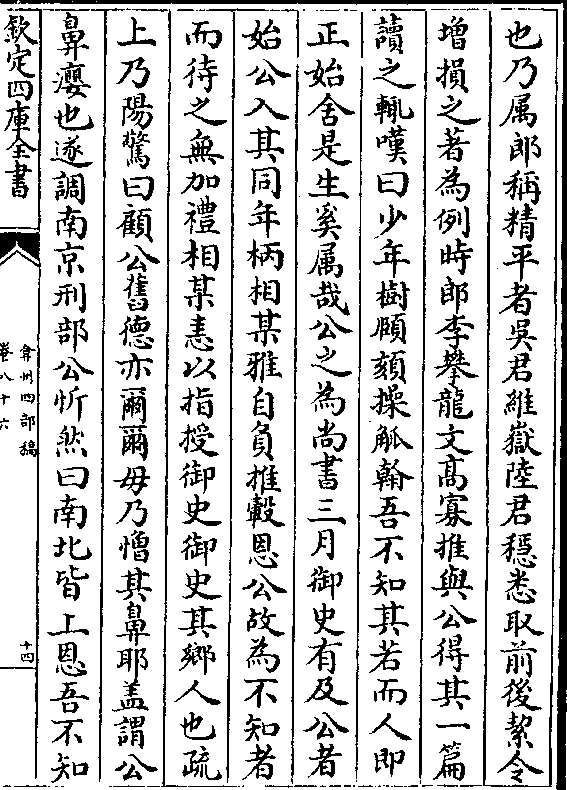 也乃属郎稱精平者吳君維嶽陸君穩悉取前後絜令
增損之著為例時郎李攀龍文髙寡推與公得其一篇
讀之輙嘆曰少年樹頤頦操觚翰吾不知其若而人即
正始舍是生奚属哉公之為尚書三月御史有及公者
始公入其同年柄相某雅自負推轂恩公故為不知者
而待之無加禮相某恚以指授御史御史其鄉人也疏
上乃陽驚曰顧公舊德亦爾爾毋乃憎其鼻耶蓋謂公
鼻癭也遂調南京刑部公忻然曰南北皆上恩吾不知
欽定四庫全書
弇州四部稿
卷八十六
十四